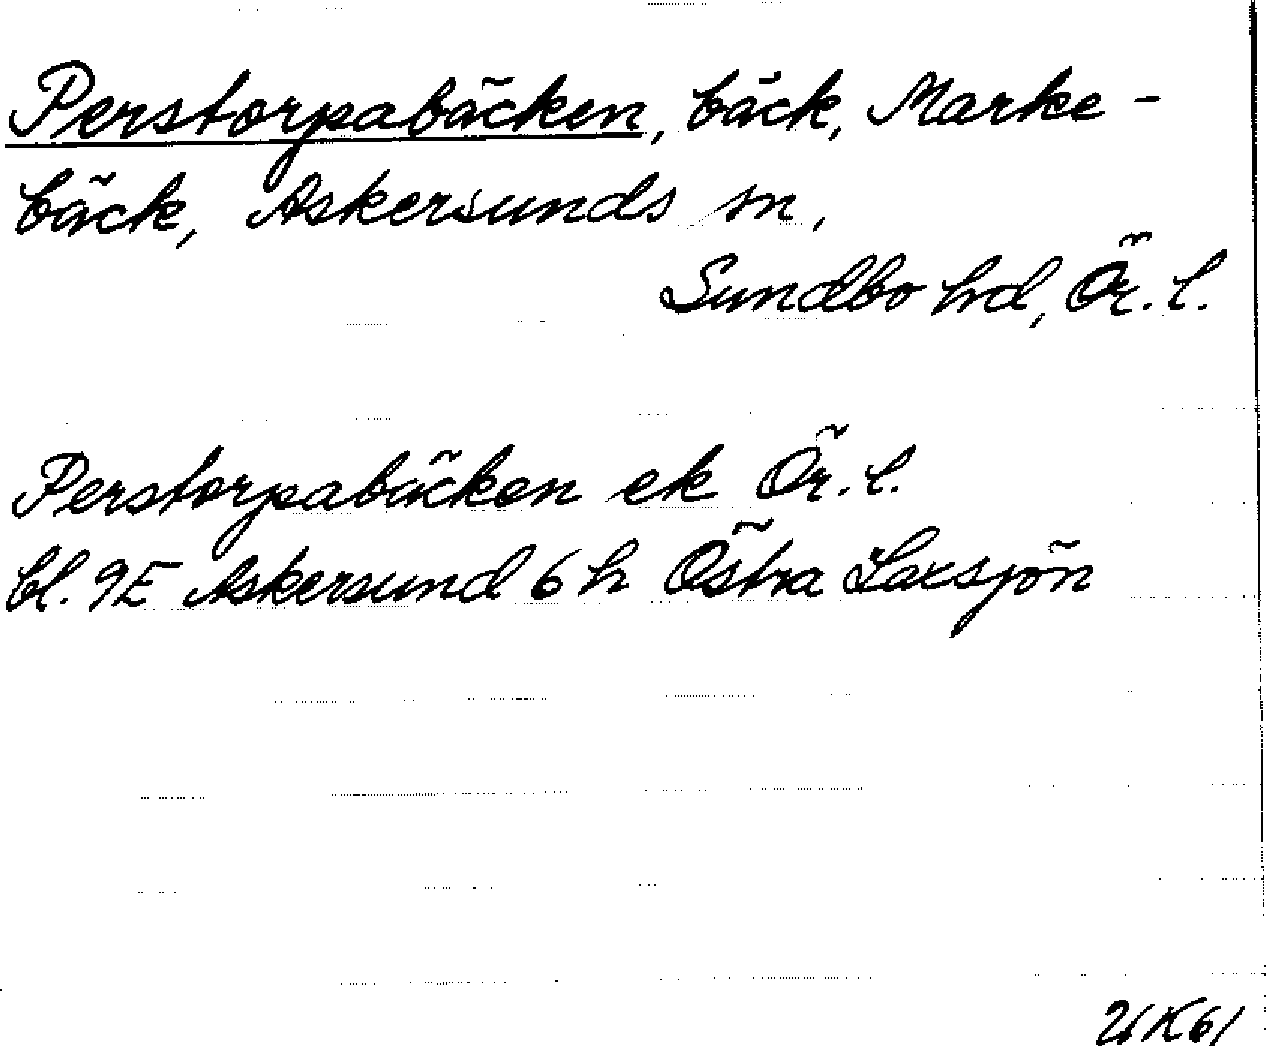 Perstorpabäcken, bäck, Marke-
bäck, Askersunds sn,
Sundbo hd, Ör. l.
Perstorpabäcken ek Ör. l.
bl. 9E Askersund 6 h Östra Laxsjön